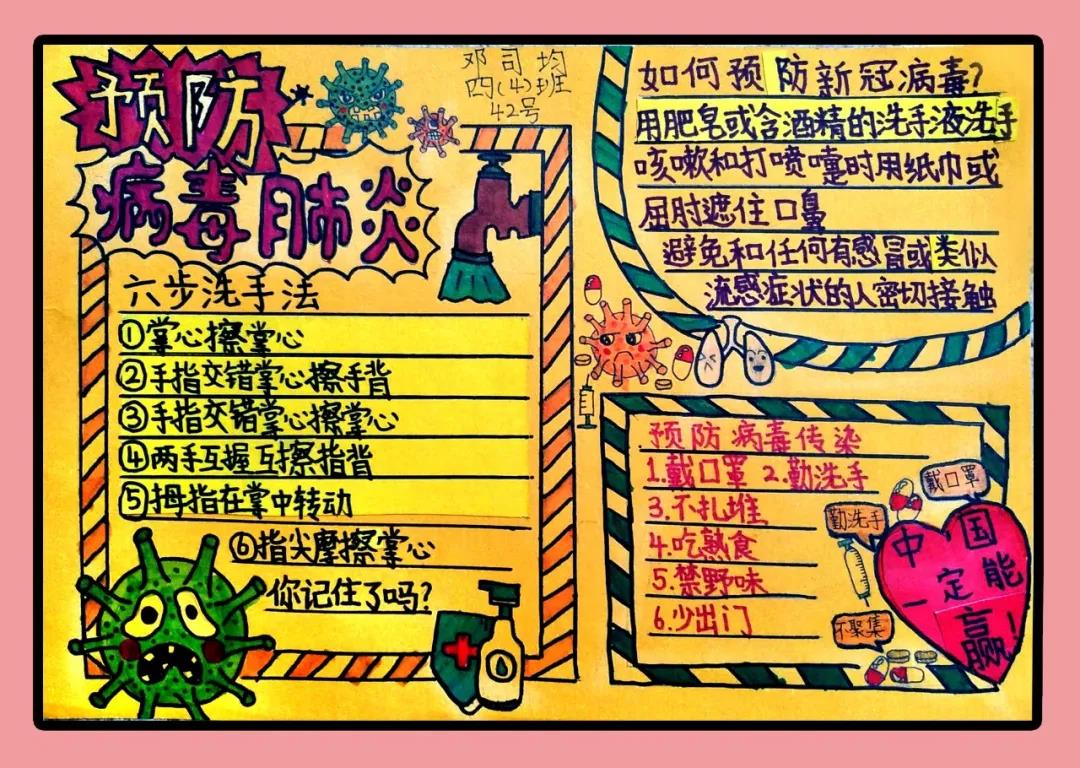 预防
病毒肺炎
邓司均
四(4)班
42号
六步洗手法
①掌心擦掌心
②手指交错掌心擦手背
③手指交错掌心擦掌心
④两手互握互擦指背
⑤拇指在掌中转动
⑥指尖摩擦掌心
你记住了吗?
如何预防新冠病毒?
用肥皂或含酒精的洗手液洗手
咳嗽和打喷嚏时用纸巾或
屈肘遮住口鼻
避免和任何有感冒或类似
流感症状的人密切接触
预防病毒传染
1.戴口罩 2.勤洗手
3.不扎堆
4.吃熟食
5.禁野味
6.少出门
戴口罩
勤洗手
不聚集
中国
一定能
赢!